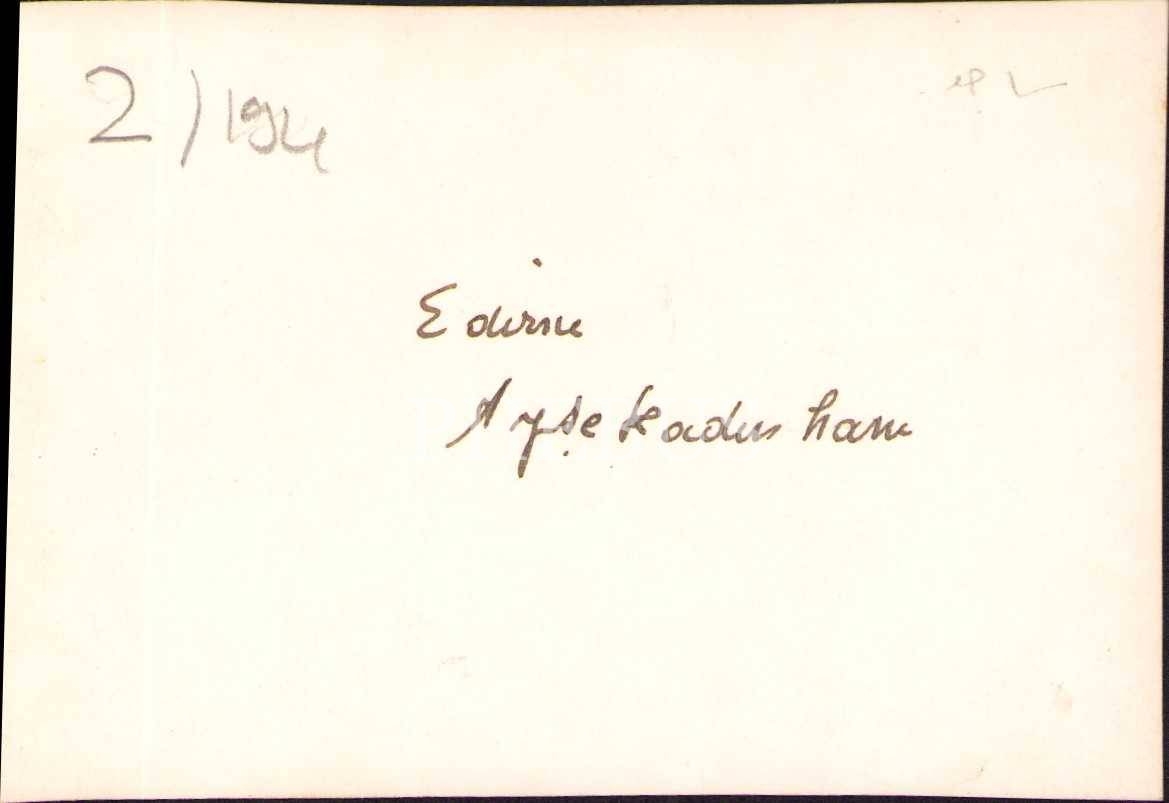 2/194
Edirne
Ayşe Kadın hanı